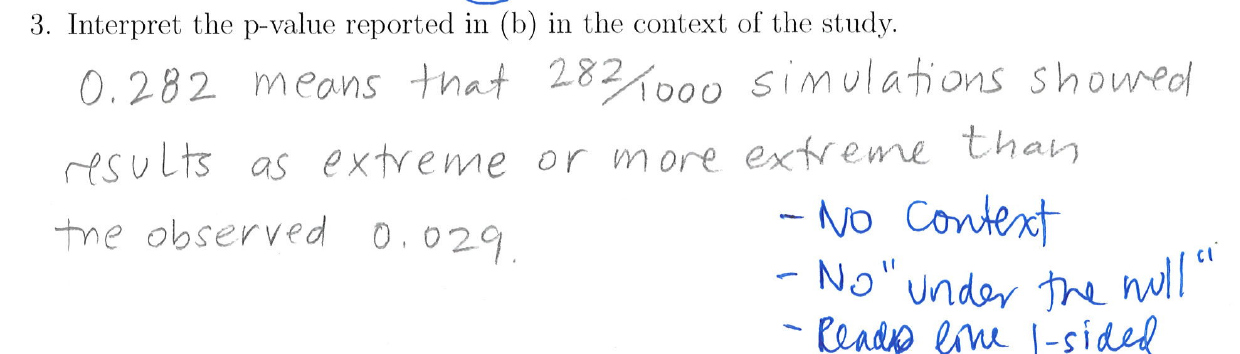 3. Interpret the p-value reported in (b) in the context of the study.
0.282 means that 282/1000 simulations showed
results as extreme or more extreme than
the observed 0.029.
- No Context
- No "under the null"
- Reads like 1-sided